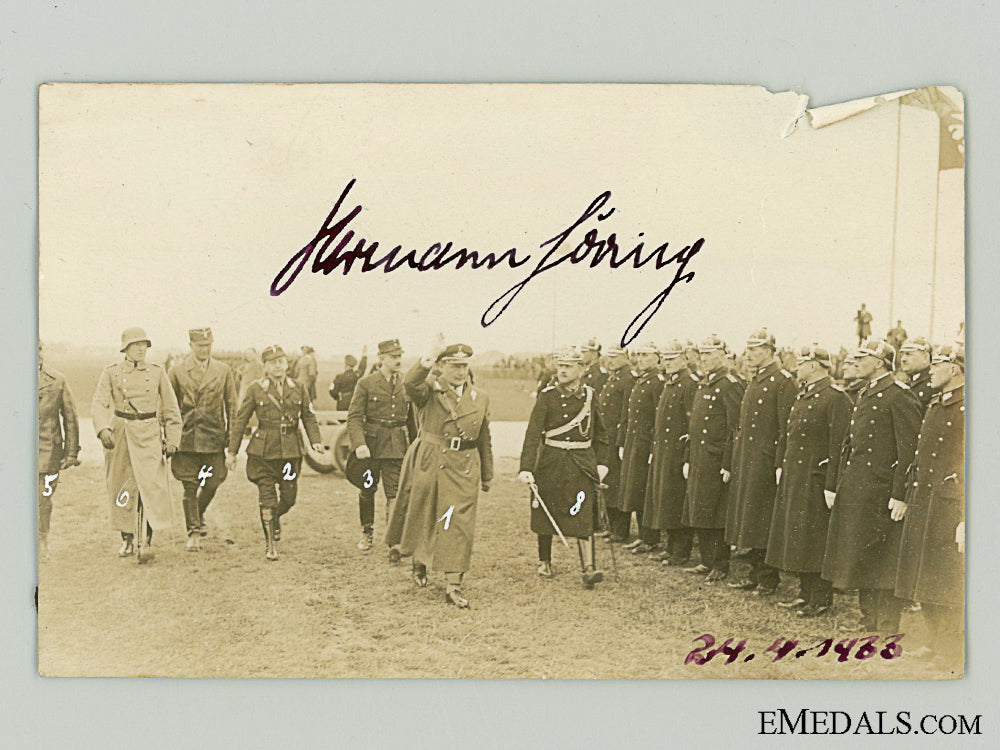 Hermann Göring
5
6
4
2
3
1
8
24.4.1933
EMEDALS.COM